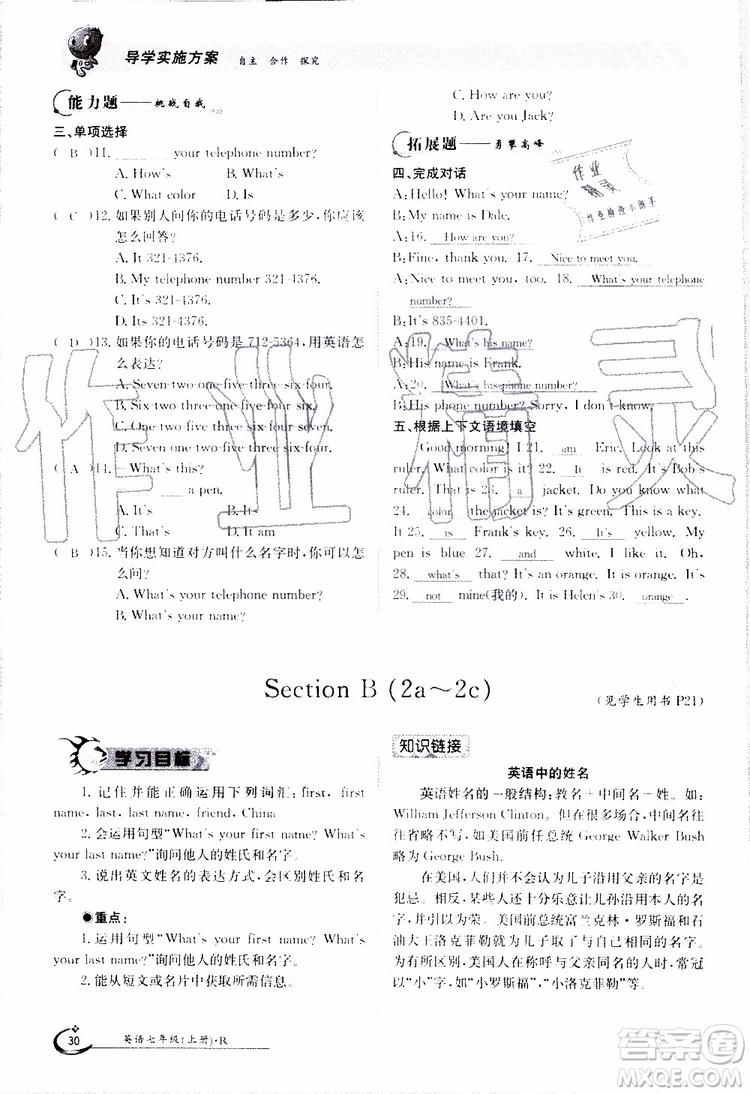 导学实施方案 自主 合作 探究
能力题——挑战自我
三、单项选择
( B )11. ________ your telephone number?
A. How's B. What's
C. What color D. Is
( C )12. 如果别人问你的电话号码是多少,你应该
怎么回答?
A. It 321-4376.
B. My telephone number 321-4376.
C. It's 321-4376.
D. It's 321.4376.
( D )13. 如果你的电话号码是 712-5364,用英语怎
么表达?
A. Seven two one five three six four.
B. Six two one five three six four.
C. One two five three six four seven.
D. Seven one two five three six four.
( A )14. —What's this?
—________ a pen.
A. It's B. Its
C. That's D. It am
( B )15. 当你想知道对方叫什么名字时,你可以怎
么问?
A. What's your telephone number?
B. What's your name?
C. How are you?
D. Are you Jack?
拓展题——勇攀高峰
四、完成对话
A: Hello! What's your name?
B: My name is Dale.
A: 16. How are you?
B: Fine, thank you. 17. Nice to meet you.
A: Nice to meet you, too. 18. What's your telephone
number?
B: It's 835-4401.
A: 19. What's his name?
B: His name is Frank.
A: 20. What's his phone number?
B: His phone number? Sorry, I don't know.
五、根据上下文语境填空
Good morning! I 21. am Eric. Look at this
ruler. What color is it? 22. It is red. It's Bob's
ruler. What's this? It's 23. a jacket. What
24. color the jacket is? It's green. It's my
jacket. 25. It's Frank's key. 26. My
pen is blue 27. and white. I like it. Oh,
28. what's that? It is an orange. It is
29. not mine(我的). It is Helen's 30. orange.
Section B (2a～2c)
(见学生用书 P21)
学习目标
1. 记住并能正确运用下列词汇:first, first
name, last, last name, friend, China
2. 会运用句型“What's your first name? What's
your last name?”询问他人的姓氏和名字。
3. 说出英文姓名的表达方式,会区分姓氏和名
字。
●重点:
1. 运用句型“What's your first name? What's
your last name?”询问他人的姓氏和名字。
2. 能从短文或名片中获取所需信息。
知识链接
英语中的姓名
英语姓名的一般结构:教名+中间名+姓。如:
William Jefferson Clinton。但在很多场合,中间名往
往省略不写,如美国前任总统 George Walker Bush
略为 George Bush。
在美国,人们并不认为儿子沿用父亲的名字是
犯忌。相反,某些人还十分喜欢让儿孙沿用本人的名
字,并以为荣。美国前总统富兰克林·罗斯福和石
油大王洛克菲勒就让儿子取了与自己一样的名字。
为有所区别,美国人在称呼与父亲同名的人时,常冠
以“小”字。如“小罗斯福”,“小洛克菲勒”等等。
30 英语七年级(上册)·R
作业精灵
作业精灵
作业检查小助手
答案圈
MXQE.COM